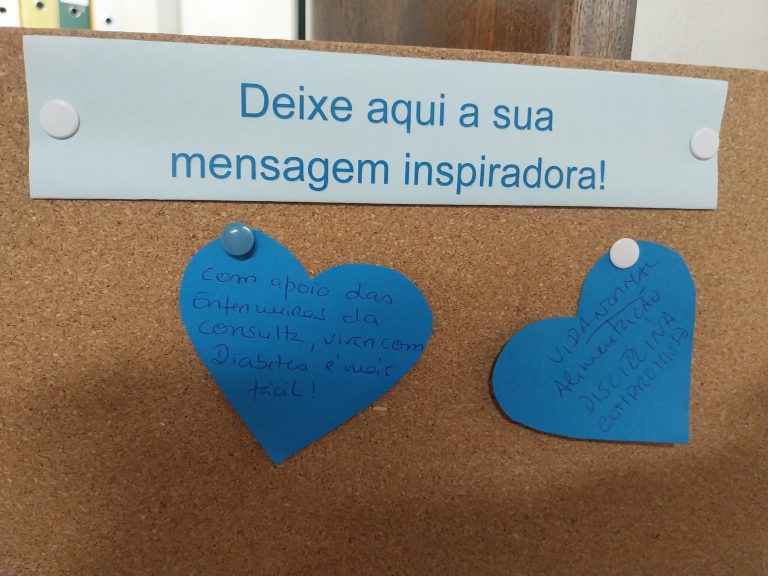 Deixe aqui a sua
mensagem inspiradora!
Com apoio das
Enfermeiras da
Consulta, viver com
Diabetes é mais
fácil!
VIDA NORMAL
Alimentação
DISCIPLINA
COMPROMISSO